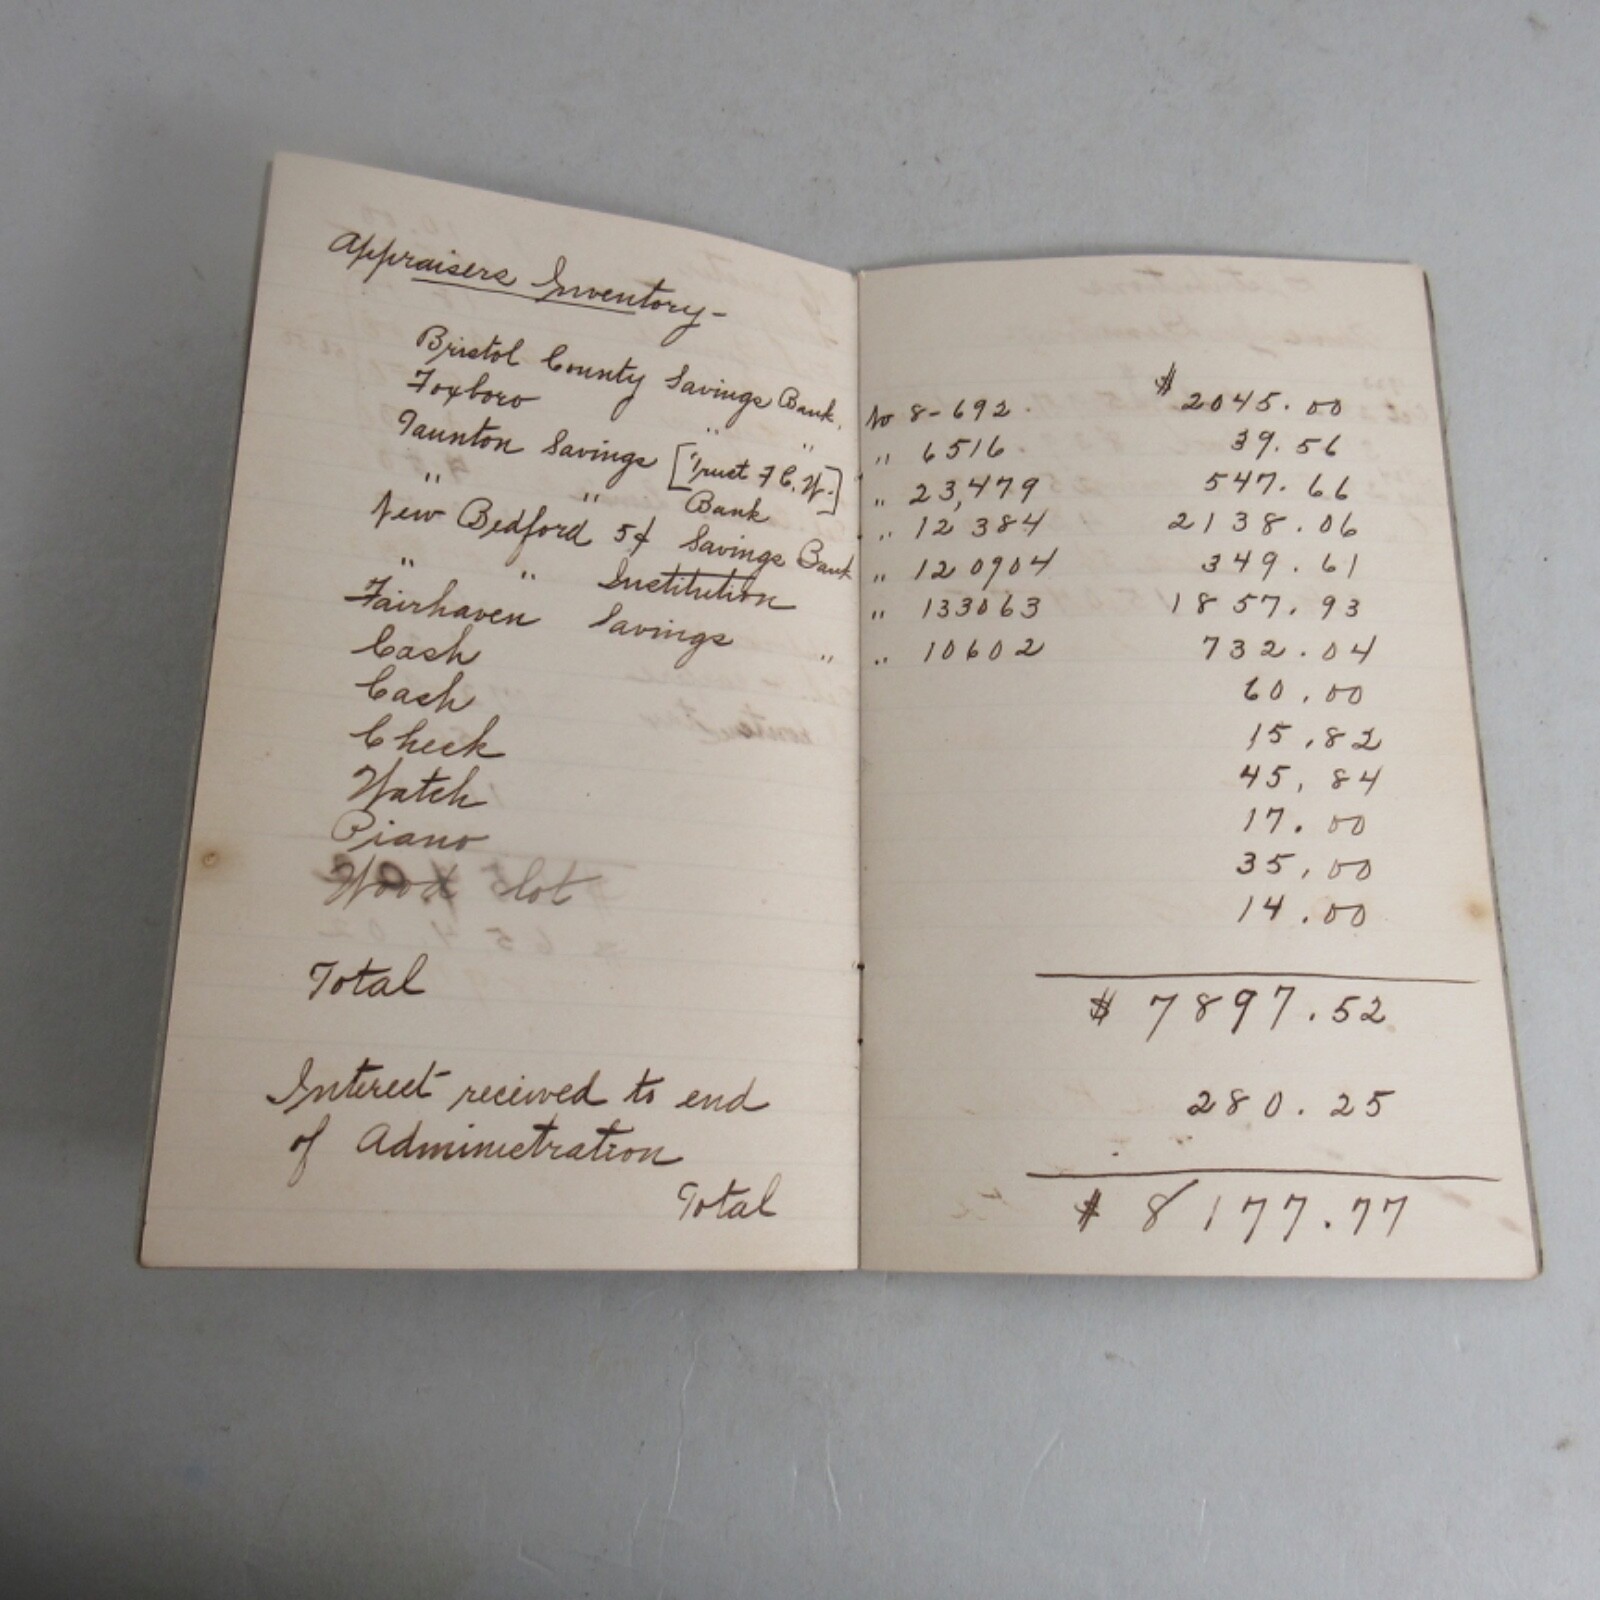 Appraisers Inventory-
Bristol County Savings Bank, No 8-692. $2045.00
Foxboro " " " 6516. 39.56
Taunton Savings [Trust F C. W.] " 23,479 547.66
" " Bank " 12384 2138.06
New Bedford 5¢ Savings Bank " 120904 349.61
" " Institution " 133063 1857.93
Fairhaven Savings " " 10602 732.04
Cash 60.00
Cash 15.82
Check 45,84
Watch 17.00
Piano 35,00
Wood lot 14.00
Total $7897.52
Interest recieved to end
of Administration 280.25
Total $8177.77